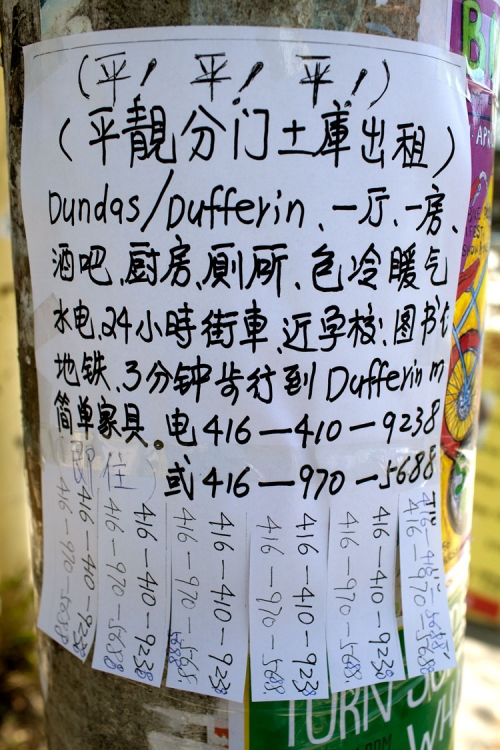 (平! 平! 平!)
(平靚分门土庫出租)
Dundas/Dufferin、一厅、一房、
酒吧、厨房、厠所、包冷暖气
水电、24小時街車、近学校、图书
地铁、3分钟步行到 Dufferin m
简单家具。电416-410-9238
(即住) 或416-970-5688
416-410-9238
416-970-5688
416-410-9238
416-970-5688
416-410-9238
416-970-5688
416-410-9238
416-970-5688
416-410-9238
416-970-5688
TURN
WH